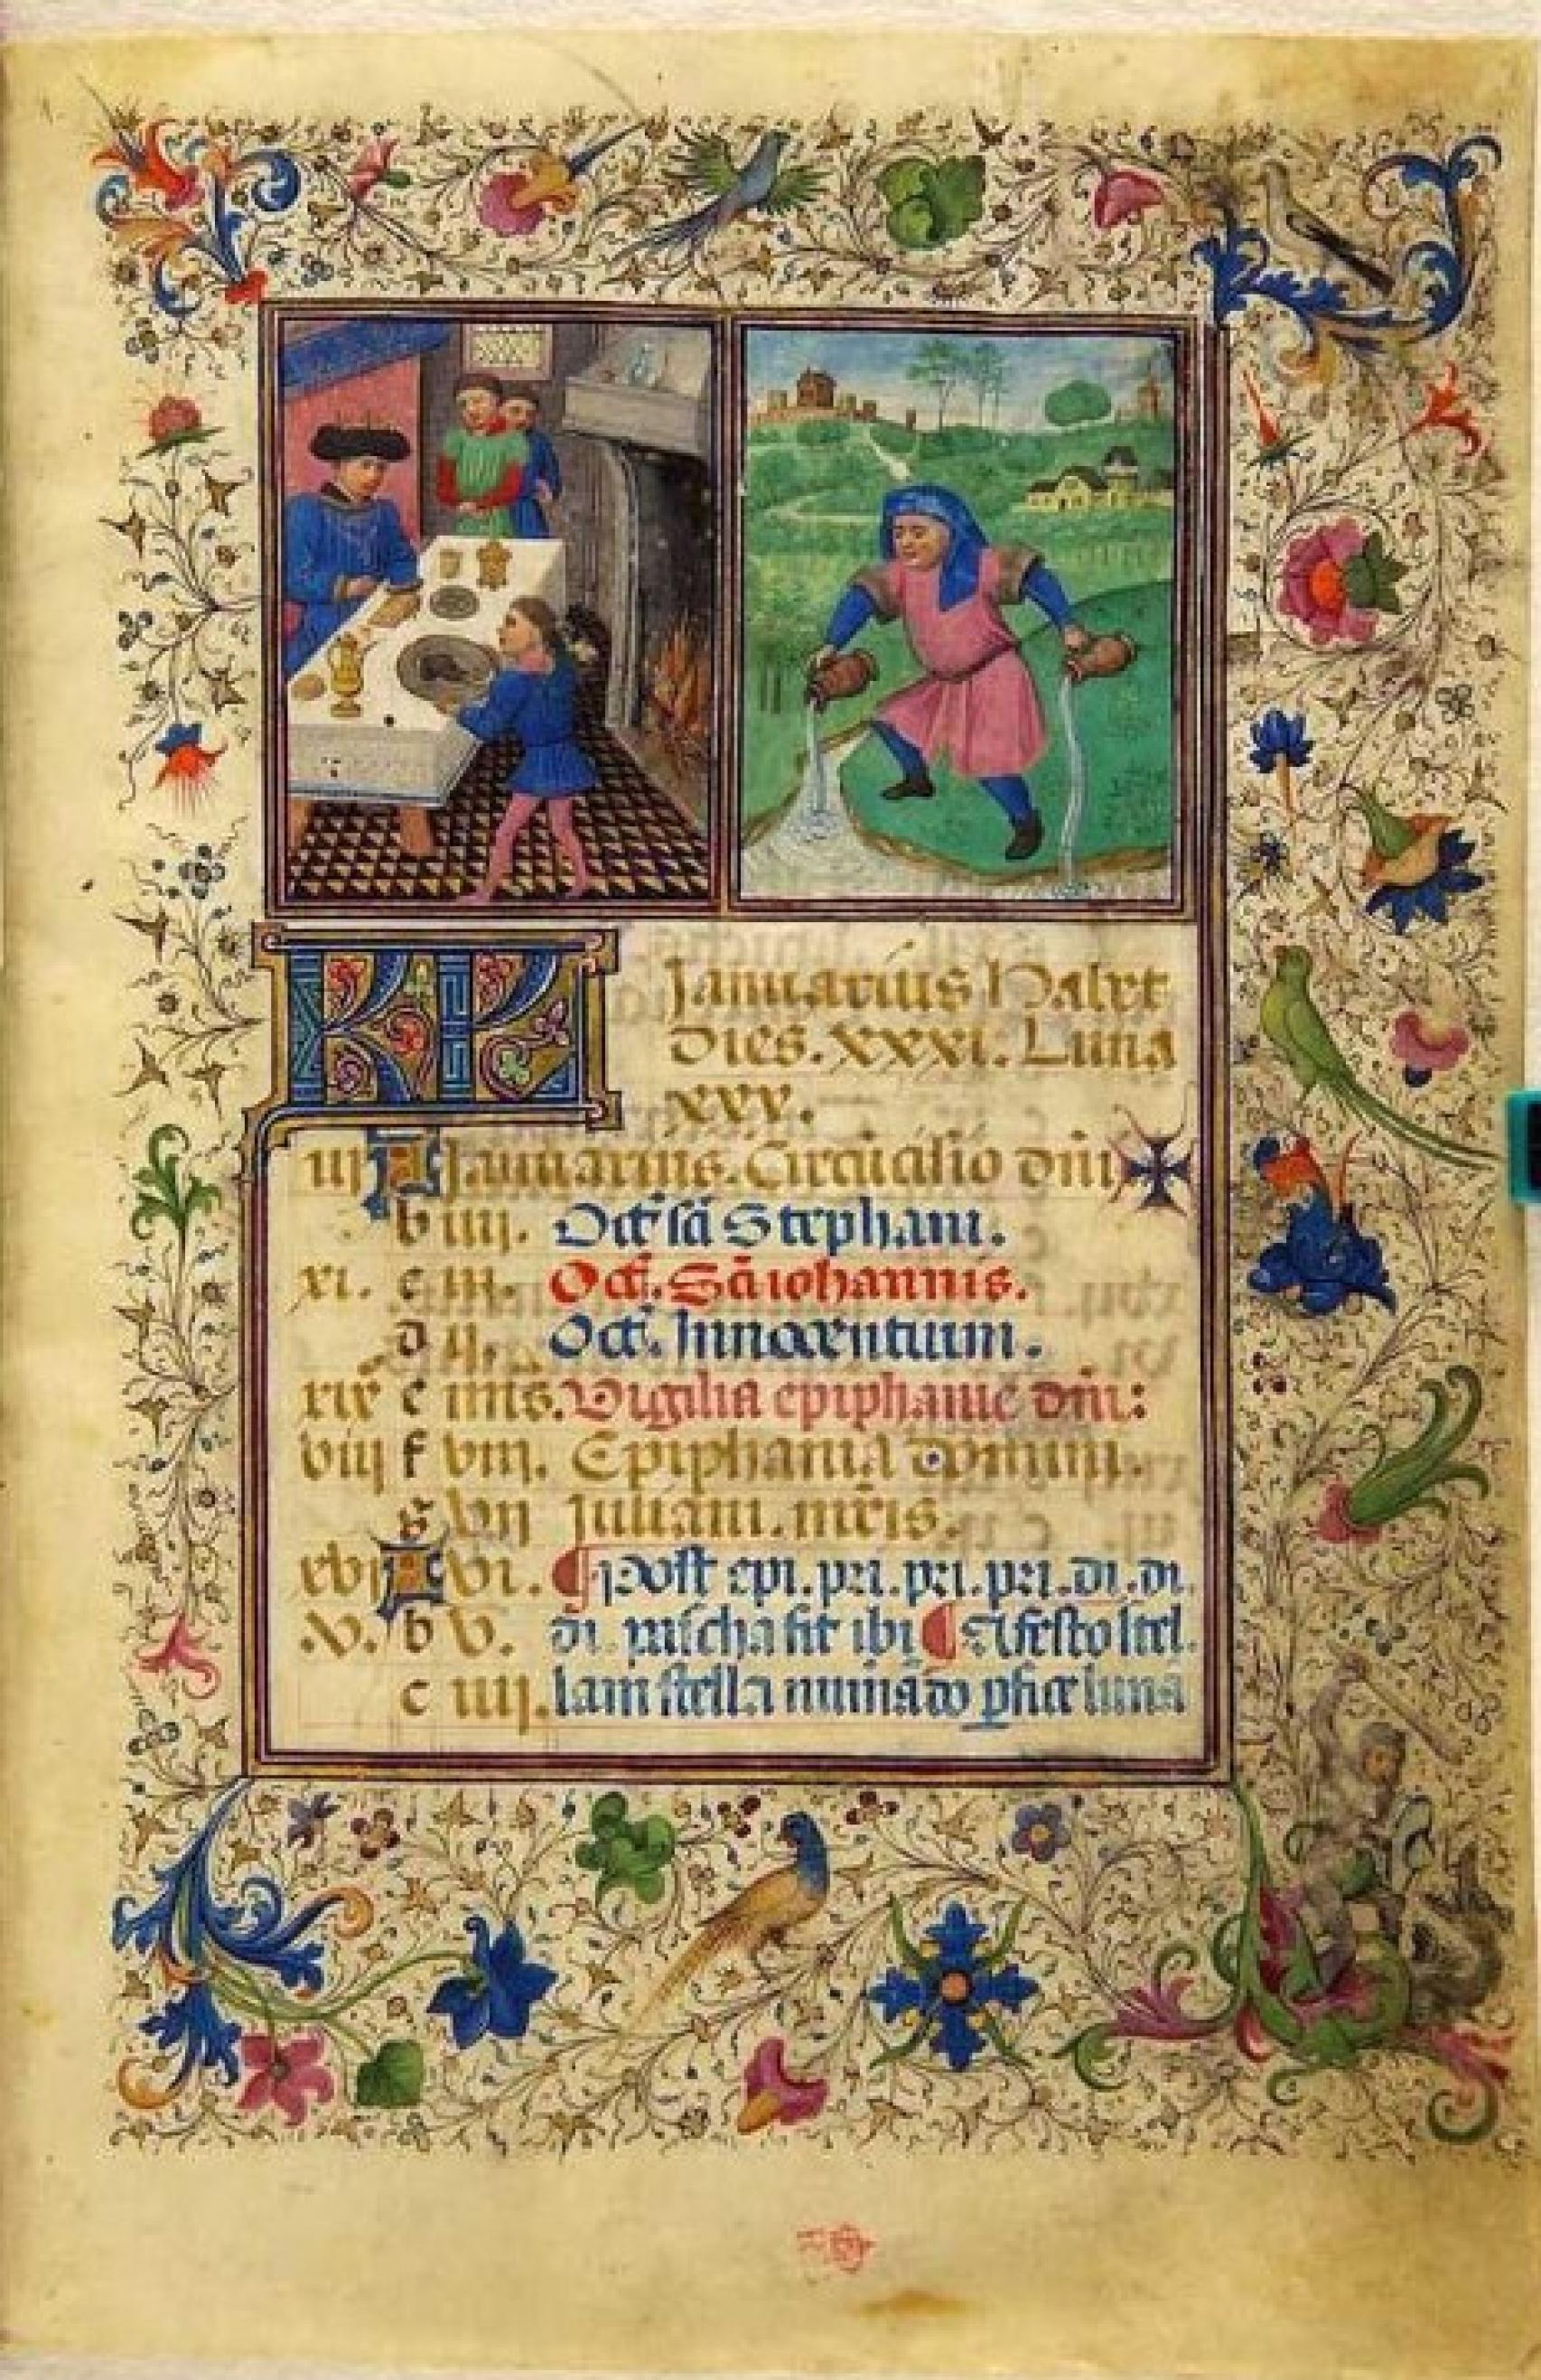 KL Januarius habet
dies. xxxi. Luna
xxx.
iij A Januarius. Circūcisio dn̄i
b iiij. Oct̄ sc̄i Stephani.
xi. c iij. Oct̄. Sc̄i iohannis.
d ij. Oct̄. Innocentium.
xix e nōs. Vigilia epiphanie dn̄i:
viij f viij. Epiphania domini.
g vij Juliani. mr̄is.
xvj A vi. ¶ Post epi. pri. pri. pri. di. di.
v. b v. di pascha fit ibi ¶ A festo stel
c iiij. lam stella numādo ꝑfice lunā